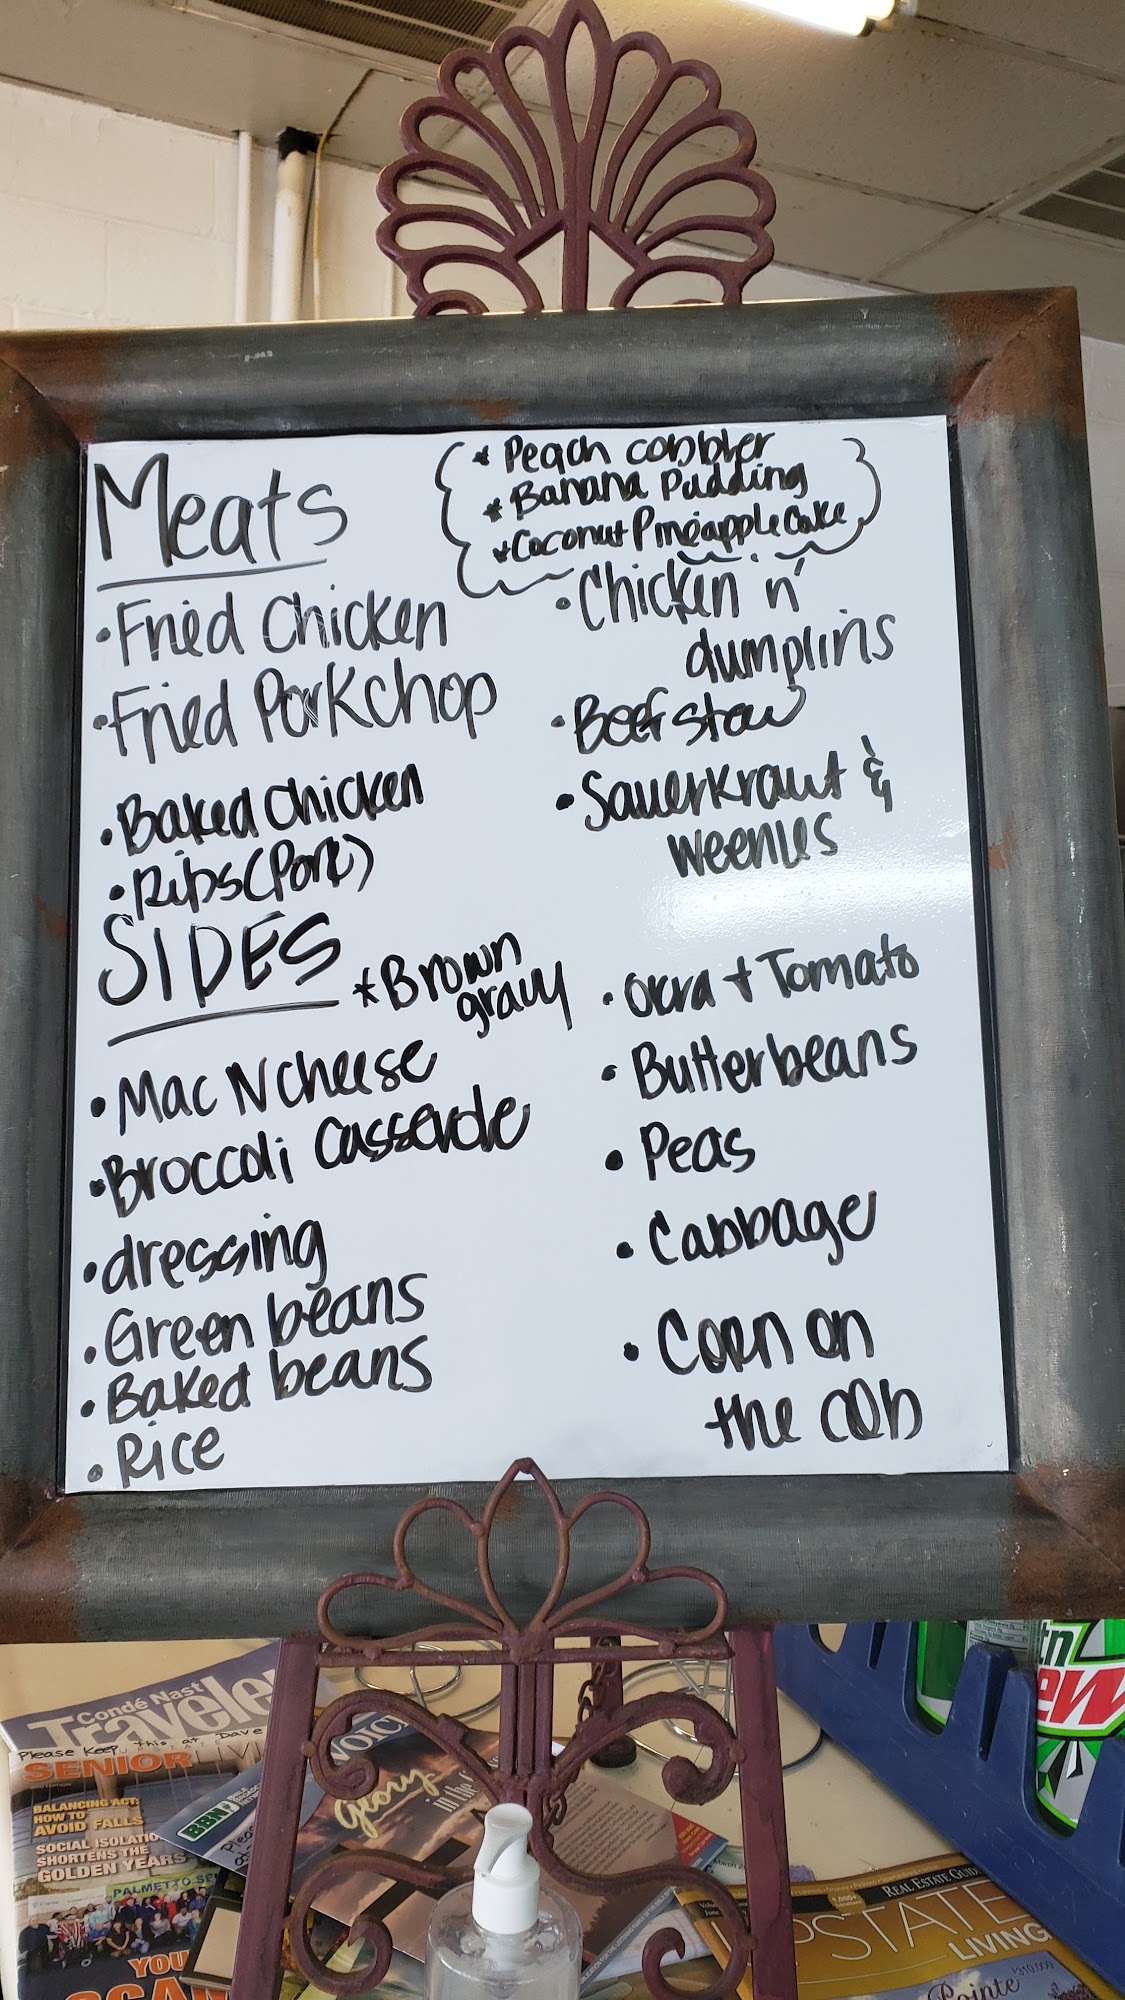 Meats
* Peach cobbler
* Banana Pudding
* Coconut Pineapple Cake
• Fried Chicken
• Fried Porkchop
• Baked Chicken
• Ribs (Pork)
• Chicken n'
dumplins
• Beef stew
• Sauerkraut &
weenies
SIDES
* Brown
gravy
• Mac N cheese
• Broccoli Casserole
• dressing
• Green beans
• Baked beans
• Rice
• Okra + Tomato
• Butterbeans
• Peas
• Cabbage
• Corn on
the cob
Condé Nast
Traveler
Please Keep this at Dave
SENIOR LIVI
BALANCING ACT:
HOW TO
AVOID FALLS
SOCIAL ISOLATIO
SHORTENS THE
GOLDEN YEARS
PALMETTO SE
YOU
SCAM
BBN
VOICE
Glory
in the
REAL ESTATE GUIDE
UPSTATE
LIVING
Pointe
$310,000
mtn
Dew